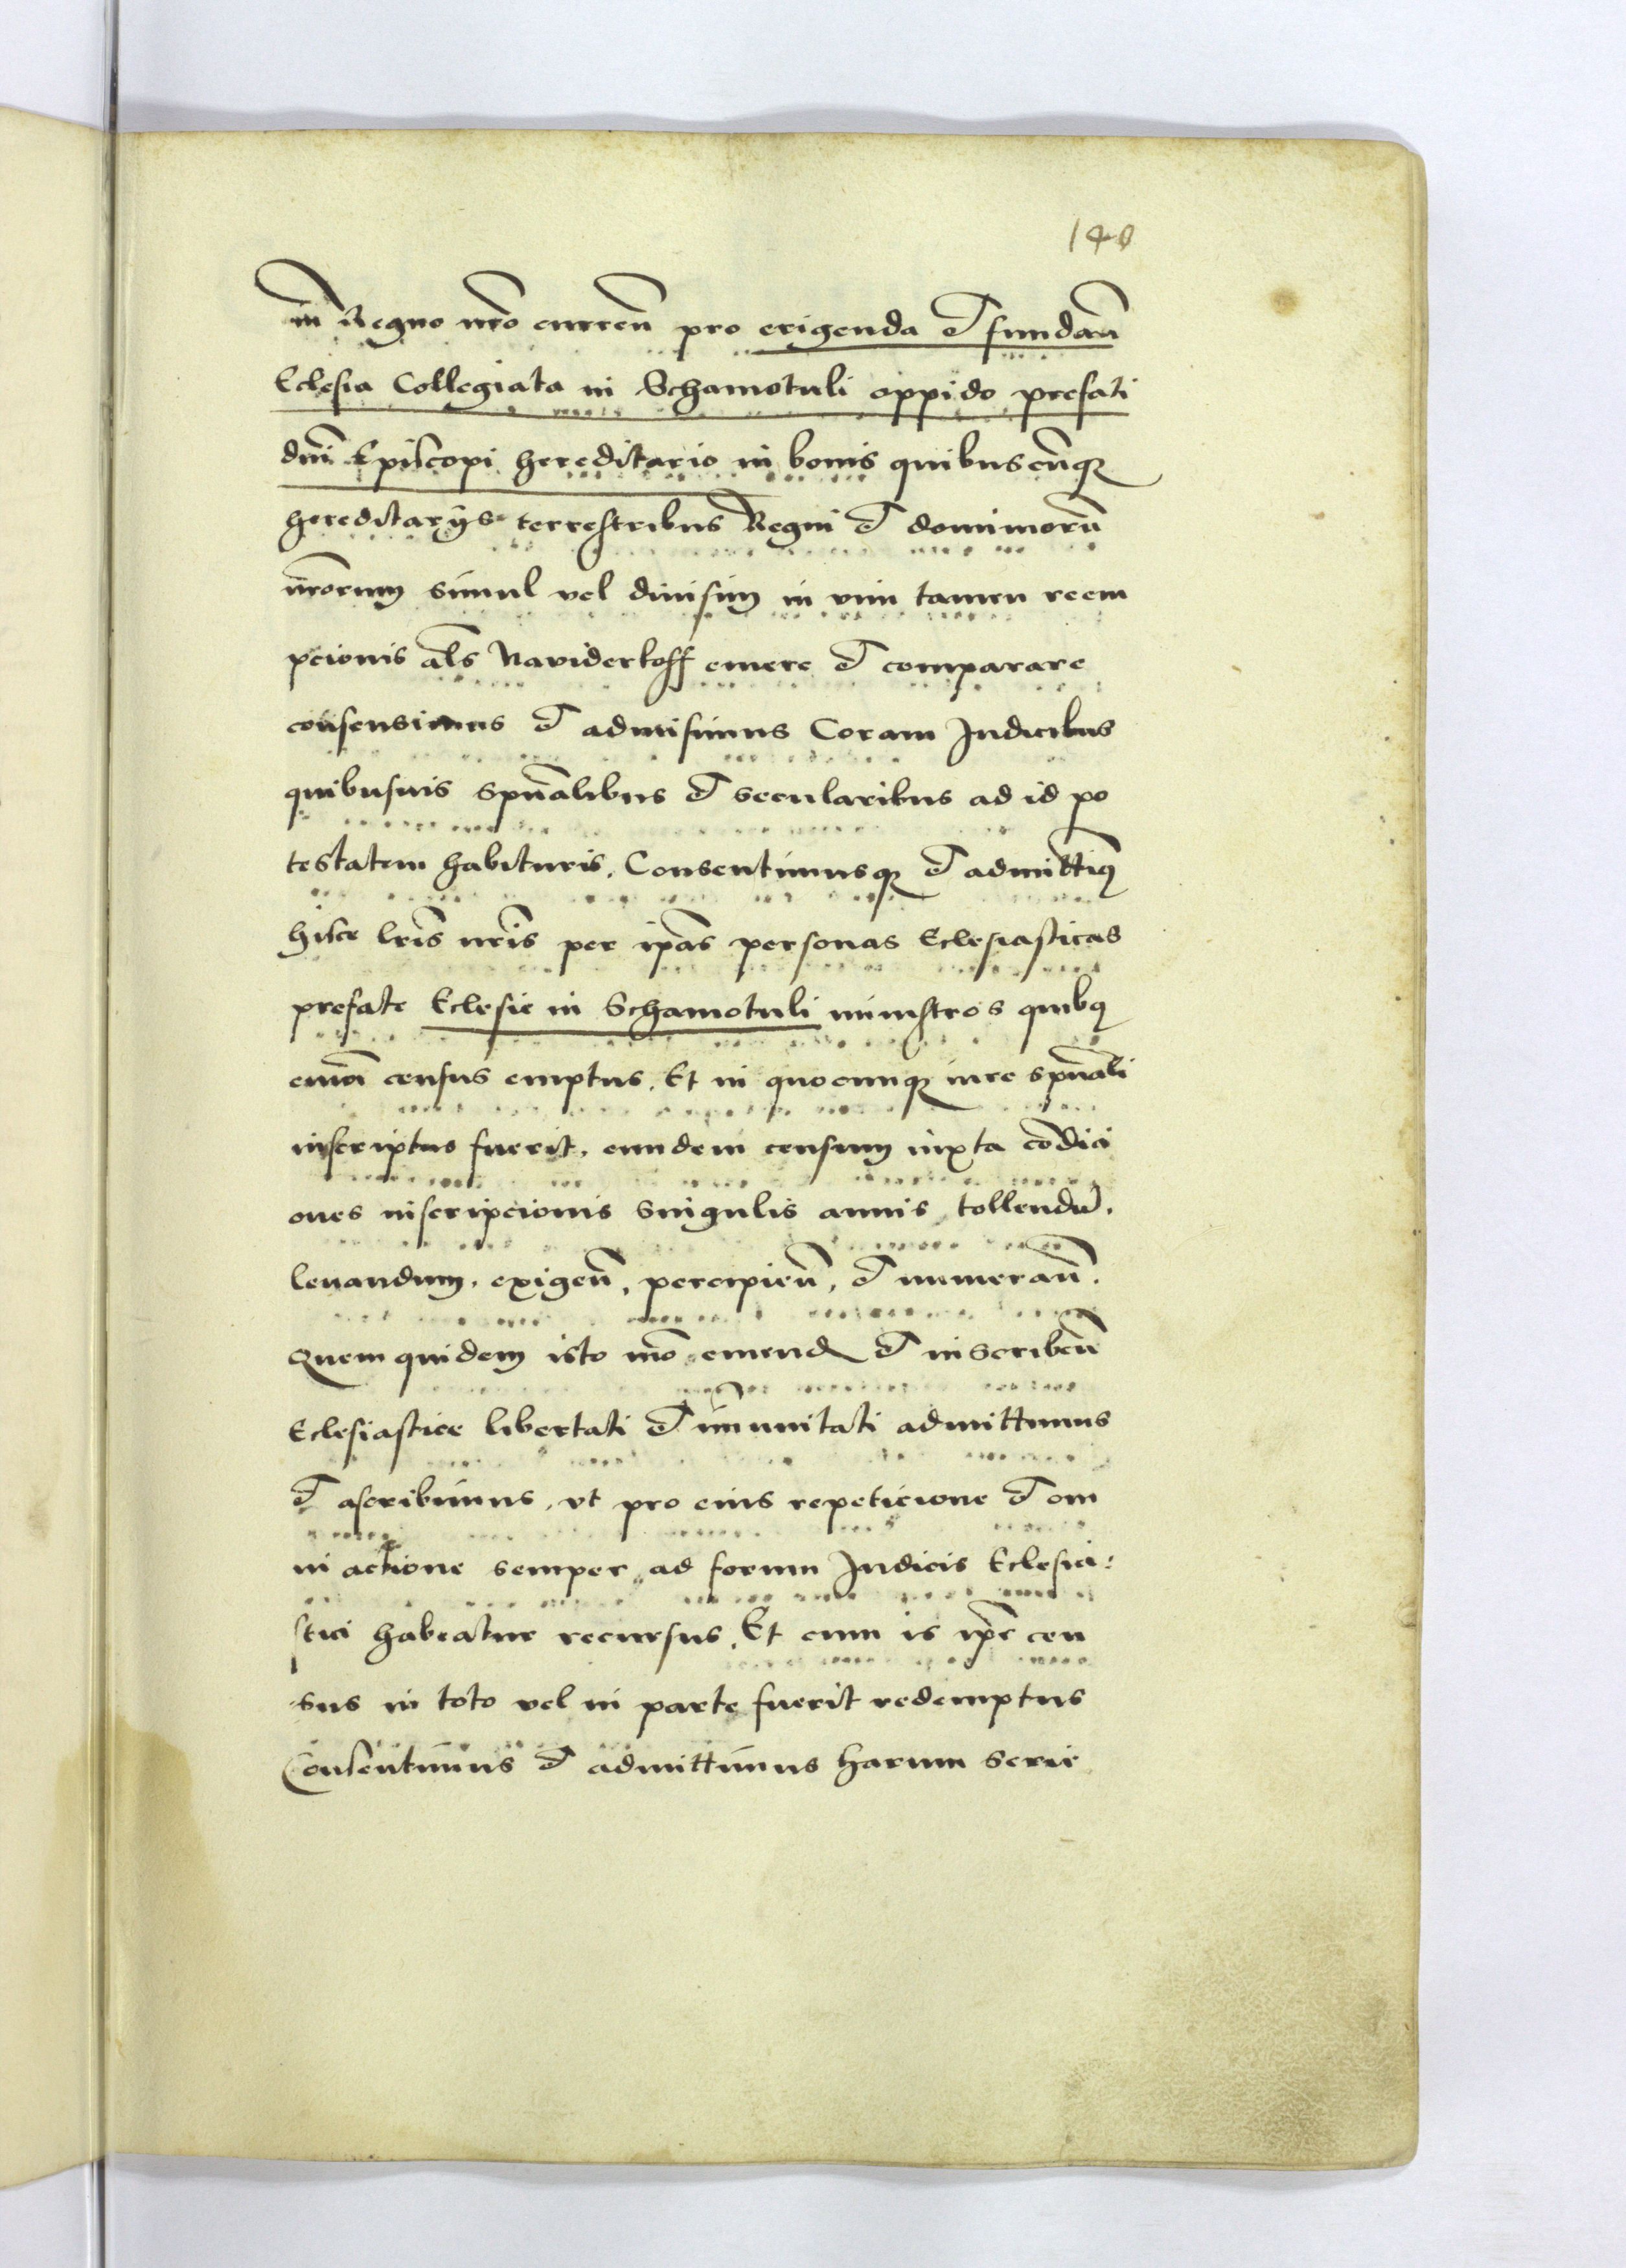 140
in Regno nr̃o curreñ pro erigenda et fundañ
Eclesia Collegiata in Schamotuli oppido prefati
dñi Episcopi hereditario in bonis quibuscũq₃
hereditarijs terrestribus Regni et dominiorũ
nr̃orum simul vel diuisim in vim tamen reem
pcionis als̃ Naviderkoff emere et comparare
consensimus et admisimus Coram Judicibus
quibusuis spũalibus et secularibus ad id po
testatem habituris. Consentimusq₃ et admittimꝰ
hisce lr̃is nr̃is per ip̃as personas Eclesiasticas
prefate Eclesie in Schamotuli ministros quibꝰ
census emptus. Et in quocunq₃ iure spũali
inscriptus fuerit. eundem censum iuxta cõdici
ones inscripcionis singulis annis tollendũ.
leuandum. exigeñ. percipieñ. et numerañ.
Quem quidem isto mõ emend et inscribeñ
Eclesiastice libertati et im̃unitati admittimus
et ascribimus. vt pro eius repeticione et om
ni actione semper ad forum Judicis Eclesia:
stici habeatur recursus. Et cum is ip̃e cen
sus in toto vel in parte fuerit redemptus
Consentimus et admittimus harum serie